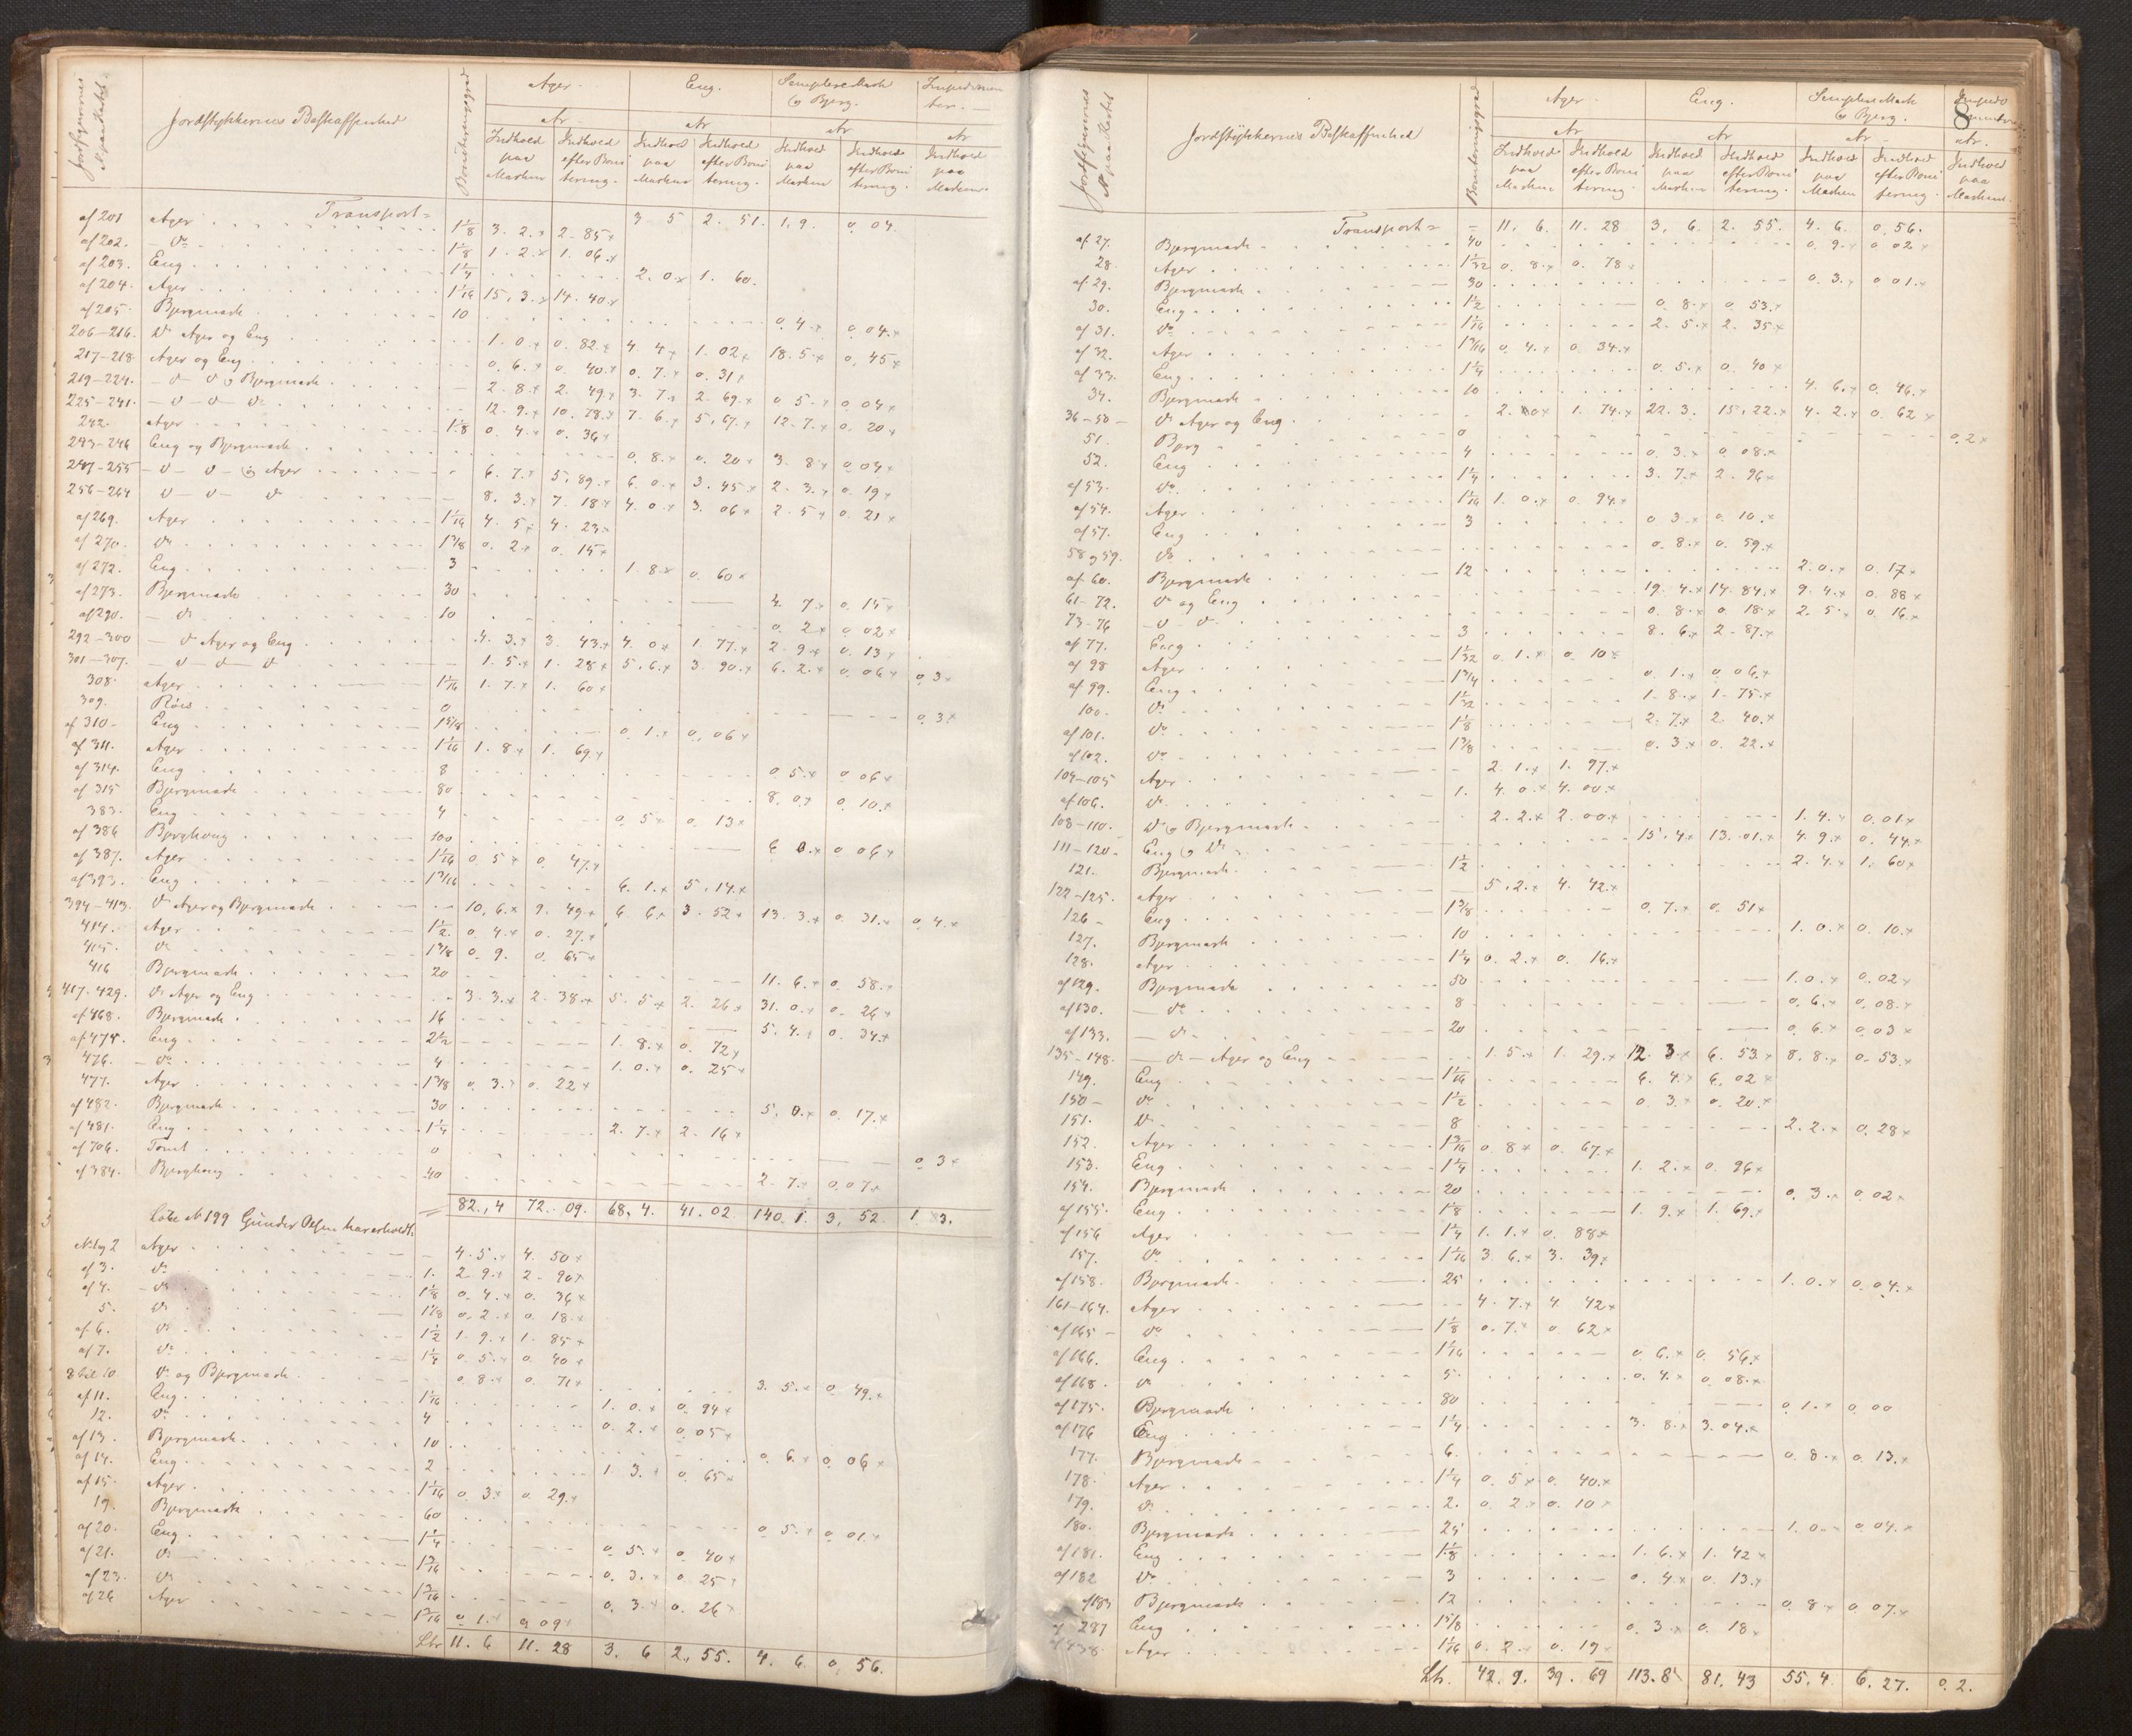 Jordstykkernes Beskaffenhed
Boniteringsgrad
Ager. Eng. Simplere Mark og Bjerg. Impedimenter.
Ar Ar Ar Ar
Indhold paa Marken Indhold efter Bonitering. Indhold paa Marken Indhold efter Bonitering. Indhold paa Marken Indhold efter Bonitering. Indhold paa Marken.
Transport = 3 5 2. 51. 1, 9. 0 04
af 201 Ager 1 1/8 3. 2. 2. 85
af 202. - do 1 1/8 1. 2 1. 06
af 203. Eng 1 1/4 2. 0 1. 60.
af 204. Ager 1 1/16 15, 3. 14. 40
af 205. Bjergmark 10 0. 4 0. 04
206-216. do Ager og Eng 1. 0 0. 82 4. 4 1. 02 18. 5 0. 45
217-218 Ager og Eng 0. 6. 0. 40 0. 7. 0. 31
219-224. - d - d og Bjergmark 2. 8 2. 49 3. 7 2. 69 0 5 0 04
225-241. - d - d - do 12. 9 10. 78 7. 6 5, 67. 12. 7. 0. 20
242. Ager 1 1/8 0. 4. 0. 36
243-246 Eng og Bjergmark 0. 8. 0. 20 3. 8 0 04
247-255 - d - d - og Ager 6. 7. 5. 89. 6. 0. 3. 45 2. 3. 0. 19
256-264 d - d - d 8. 3. 7. 18 4. 0. 3. 06 2. 5 0. 21
af 269. Ager 1 1/16 4. 5 4. 23
af 270. do 1 3/8 0. 2 0. 15
af 272. Eng 3 1. 8. 0. 60
af 273. Bjergmark 30 4. 7. 0. 15
af 290. - do 10 0. 2 0 02
292-300 - d Ager og Eng 4. 3. 3. 43 4. 0 1. 77. 2. 9 0. 13
301-307. - d - d - d 1. 5. 1. 28 5, 6. 3. 90. 6. 2. 0. 06 0 3
308. Ager 1 1/16 1. 7. 1. 60
309. Röis 0 0. 3.
af 310. Eng 1 5/8 0. 1. 0, 06
af 311. Ager 1 1/16 1. 8 1. 69.
af 314. Eng 8 0 5. 0 06
af 315 Bjergmark 80 8. 0 0. 10.
383. Eng 4 0. 5 0. 13
af 386 Bjerghang 100 6 0. 0 06
af 387. Ager 1 1/16 0. 5 0. 47.
af 393. Eng 1 3/16 6. 1. 5. 14.
394-413. do Ager og Bjergmark 10, 6. 9. 49. 6. 6. 3. 52 13. 3. 0. 31. 0. 4.
414. Ager 1 1/2 0. 4. 0. 27.
415. do 1 3/8 0. 9. 0. 65
416 Bjergmark 20 11. 6. 0. 58.
417-429. do Ager og Eng 3. 3. 2. 38. 5. 5. 2. 26 31. 0. 0. 26
af 468. Bjergmark 16 5. 4. 0. 34.
af 474. Eng 2 1/2 1. 8. 0. 72
476. - do 4 1. 0. 0. 25
477. Ager 1 3/8 0. 3. 0. 22
af 482. Bjergmark 30 5. 0. 0. 17.
af 481. Eng 1 1/4 2. 7. 2. 16
af 706. Tomt 0 0. 3
af 384. Bjerghang 40 2. 7. 0. 07
82, 4 72. 09. 68, 4. 41. 02. 140. 1. 3, 52. 1. 3.
Løbe No 199 Gunder Olsen har erholdt:
No 1 og 2 Ager 4. 5. 4. 50
af 3. do 1. 2 9. 2. 90
af 4. - do 1 1/8 0. 4. 0. 36
5. do 1 1/8 0. 2. 0. 18.
af 6. do 1 1/2 1. 9. 1. 85
af 7. do 1 1/4 0. 5. 0. 40
8 til 10 do og Bjergmark 0. 8. 0. 71 3. 5. 0. 49.
af 11. Eng 1 1/16 1. 0. 0. 94
12. do 4 0. 2. 0. 05
af 13. Bjergmark. 10 0. 6. 0. 06
af 14. Eng 2 1. 3. 0. 65
af 15. Ager 1 1/16 0. 3 0. 29.
19. Bjergmark 60 0. 5. 0. 01.
af 20. Eng 1 1/4 0. 5. 0. 40
af 21. do 1 3/16 0. 3. 0. 25
af 23. do 1 3/16 0. 3 0. 26
af 26 Ager 1 3/16 0 1. 0. 09
Ltr. 11. 6 11. 28 3. 6 2, 55. 4. 6. 0, 56.
8
Jordstykkernes Beskaffenhed
Boniteringsgrad
Ager. Eng. Simplere Mark og Bjerg. Impedimenter
Ar Ar Ar Ar.
Indhold paa Marken Indhold efter Bonitering. Indhold paa Marken Indhold efter Bonitering. Indhold paa Marken Indhold efter Bonitering. Indhold paa Marken.
Transport = 11, 6. 11. 28 3, 6. 2. 55. 4. 6. 0, 56.
af 27. Bjergmark 40 0. 9. 0 02
28. Ager 1 1/32 0. 8. 0. 78
af 29. Bjergmark 30 0. 3. 0 01.
30. Eng 1 1/2 0. 8. 0. 53.
af 31. do 1 1/16 2. 5. 2. 35
af 32. Ager 1 3/16 0. 4. 0. 34.
af 33. Eng 1 1/4 0. 5. 0. 40
34. Bjergmark 10 4. 6. 0. 46.
36-50 - do Ager og Eng 2. 0 1. 74. 22. 3. 15, 22. 4. 2. 0. 62
51. Bjerg 0 0, 2
52. Eng 4 0. 3. 0. 08.
af 53. do. 1 1/4 3. 7. 2. 96
af 54. Ager 1 1/16 1. 0. 0. 94.
af 57. Eng 3 0 3. 0. 10.
58 og 59. do 0. 8. 0. 59.
af 60. Bjergmark 12 2. 0. 0. 17
61-72. do og Eng 19. 4. 14. 84. 9. 4. 0. 88
73-76 - d - d 0. 8. 0. 18 2. 5 0. 16.
af 77. Eng 3 8. 6. 2. 87.
af 98 Ager 1 1/32 0. 1. 0. 10
af 99. Eng 1 3/4 0. 1. 0. 06.
100. do 1 1/32 1. 8. 1. 75.
af 101. do 1 1/8 2. 7. 2. 40.
af 102. do 1 3/8 0. 3. 0. 22.
104-105 Ager 2. 1. 1. 97.
af 106. do 1. 4. 0. 4. 00.
108-110. do og Bjergmark 2. 2. 2. 00. 1. 4. 0. 01
111-120 Eng og do 15, 4. 13. 01. 4. 9. 0. 44.
121. Bjergmark 1 1/2 2. 4. 1. 60
122-125. Ager 5. 2. 4. 42.
126 - Eng 1 3/8 0. 7. 0. 51
127. Bjergmark 10 1. 0. 0. 10.
128. Ager 1 1/4 0. 2. 0. 16.
af 129. Bjergmark 50 1. 0. 0. 02
af 130. - do 8 0. 6. 0. 08.
af 133. - do 20 0. 6. 0. 03
135-148. - do - Ager og Eng 1. 5. 1. 29. 12. 3. 6. 53. 8. 8. 0. 53.
149. Eng 1 1/16 6. 4. 6. 02
150 - do 1 1/2 0. 3. 0. 20.
151. do 8 2. 2. 0. 28
152. Ager 1 3/16 0. 8 0. 67.
153. Eng 1 1/4 1. 2. 0. 96
154. Bjergmark 20 0. 3. 0. 02
af 155. Eng 1 1/8 1. 9. 1. 69.
af 156 Ager 1 1/4 1. 1. 0. 88
157. do 1 1/16 3. 6. 3. 39
af 158. Bjergmark 25 1. 0. 0. 04.
161-164. Ager 4. 7. 4. 42
af 165 - do 1 1/8 0. 7. 0. 62
af 166. Eng 1 1/16 0. 6. 0. 56.
af 168. do 5. 0. 4. 0. 08.
af 175. Bjergmark 80 0. 1. 0. 00
af 176 Eng 1 1/4 3. 8. 3. 04.
177. Bjergmark 6. 0. 8. 0. 13.
178. Ager 1 1/4 0. 5 0. 40.
179. do 2. 0. 2 0. 10
180. Bjergmark 25 1. 0. 0. 04.
af 181. Eng 1 1/8 1. 6. 1. 42
af 182 do 3 0. 4. 0. 13.
af 183 Bjergmark 12 0. 8 0. 07.
af 287 Eng 1 5/8 0. 3. 0. 18.
af 438. Ager 1 1/16 0. 2. 0. 19
Ltr. 42. 9. 39. 69 113. 8 81, 43 55, 4 6. 27. 0. 2.